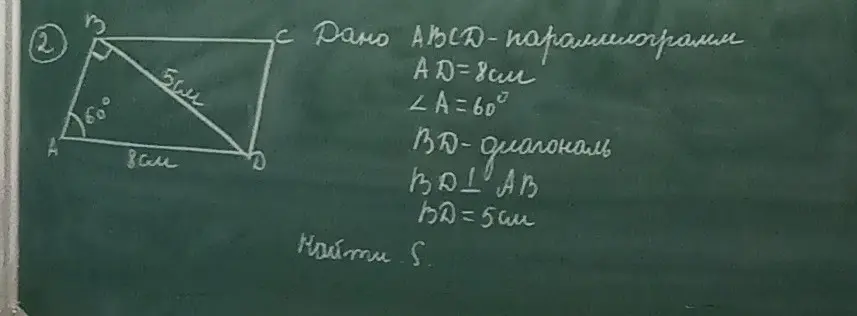 2
B
C
5см
60°
A
8см
D
Дано ABCD - параллелограмм
AD = 8см
∠A = 60°
BD - диагональ
BD ⊥ AB
BD = 5см
Найти S.